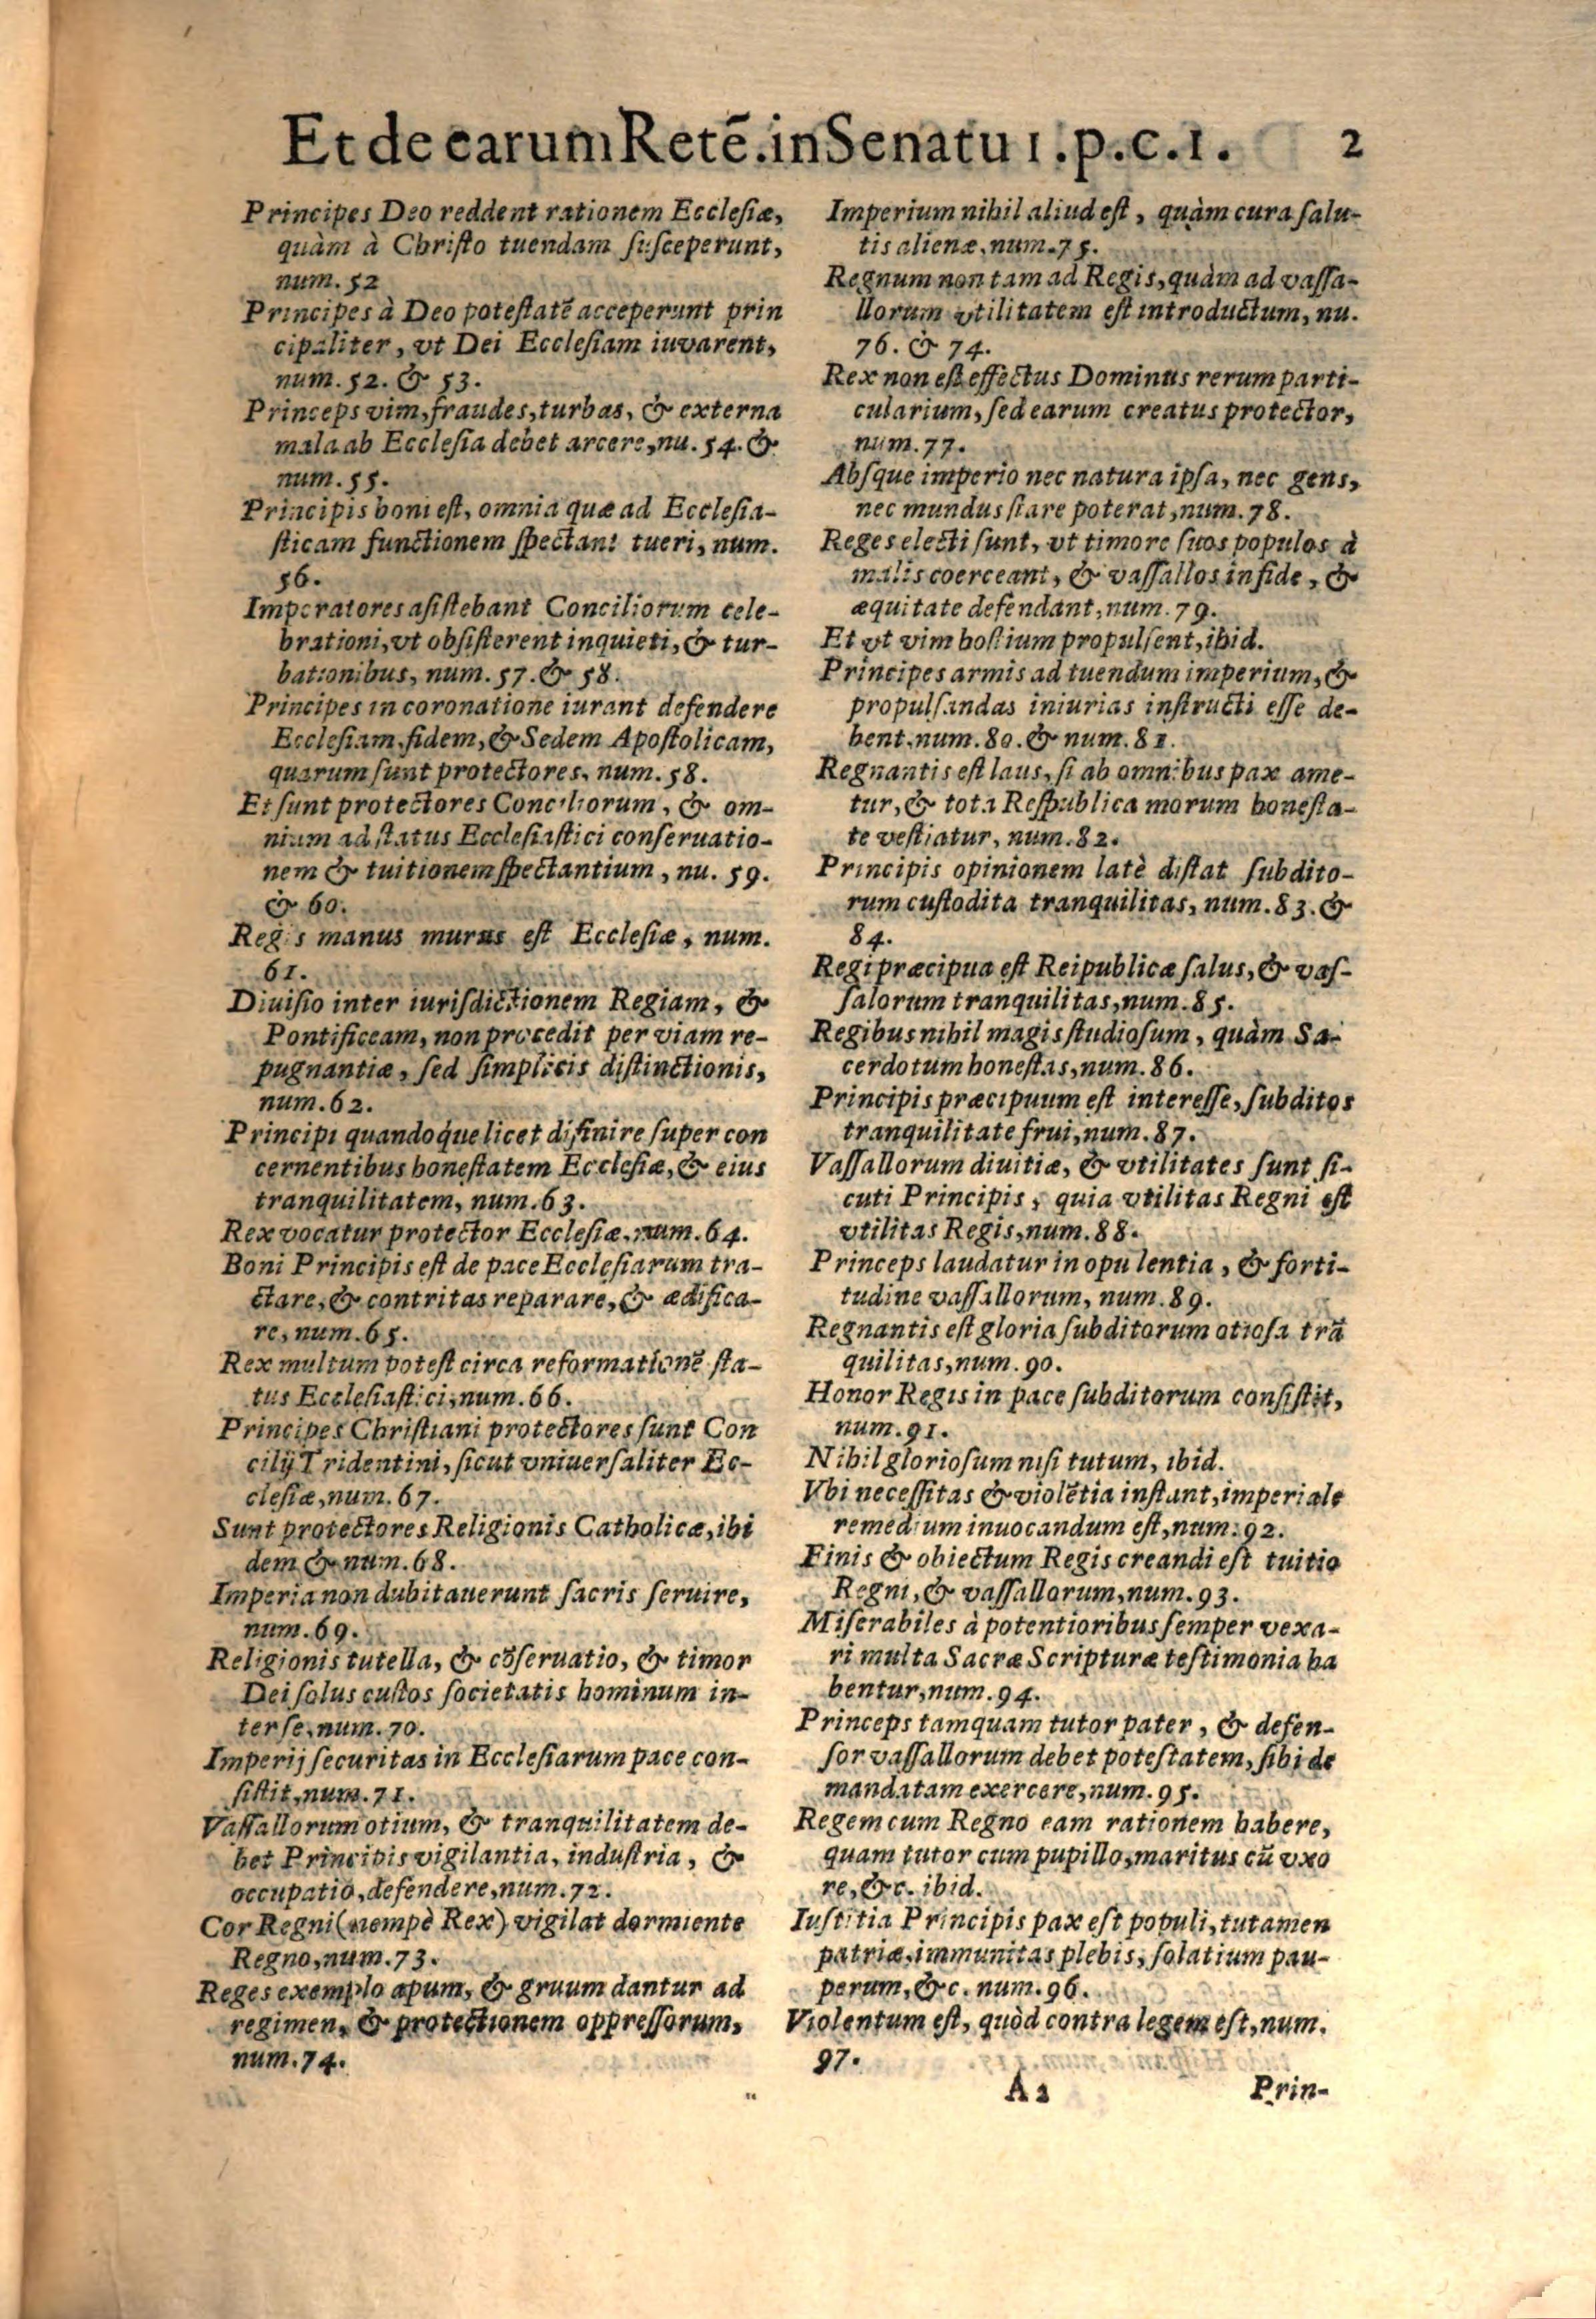 Et de earum Retē. in Senatu 1. p. c. 1. 2
Principes Deo reddent rationem Ecclesiæ,
quàm à Christo tuendam susceperunt,
num. 52
Principes à Deo potestatē acceperunt prin
cipaliter, vt Dei Ecclesiam iuvarent,
num. 52. & 53.
Princeps vim, fraudes, turbas, & externa
mala ab Ecclesia debet arcere, nu. 54. &
num. 55.
Principis boni est, omnia quæ ad Ecclesia-
sticam functionem spectant tueri, num.
56.
Imperatores asistebant Conciliorum cele-
brationi, vt obsisterent inquieti, & tur-
bationibus, num. 57. & 58.
Principes in coronatione iurant defendere
Ecclesiam, fidem, & Sedem Apostolicam,
quarum sunt protectores, num. 58.
Et sunt protectores Conciliorum, & om-
nium ad status Ecclesiastici conseruatio-
nem & tuitionem spectantium, nu. 59.
& 60.
Regis manus murus est Ecclesiæ, num.
61.
Diuisio inter iurisdictionem Regiam, &
Pontificeam, non procedit per viam re-
pugnantiæ, sed simplicis distinctionis,
num. 62.
Principi quandoque licet difinire super con
cernentibus honestatem Ecclesiæ, & eius
tranquilitatem, num. 63.
Rex vocatur protector Ecclesiæ, num. 64.
Boni Principis est de pace Ecclesiarum tra-
ctare, & contritas reparare, & ædifica-
re, num. 65.
Rex multum potest circa reformationē sta-
tus Ecclesiastici, num. 66.
Principes Christiani protectores sunt Con
cilij Tridentini, sicut vniuersaliter Ec-
clesiæ, num. 67.
Sunt protectores Religionis Catholicæ, ibi
dem & num. 68.
Imperia non dubitauerunt sacris seruire,
num. 69.
Religionis tutella, & cōseruatio, & timor
Dei solus custos societatis hominum in-
ter se, num. 70.
Imperij securitas in Ecclesiarum pace con-
sistit, num. 71.
Vassallorum otium, & tranquilitatem de-
bet Principis vigilantia, industria, &
occupatio, defendere, num. 72.
Cor Regni (nempè Rex) vigilat dormiente
Regno, num. 73.
Reges exemplo apum, & gruum dantur ad
regimen, & protectionem oppressorum,
num. 74.
Imperium nihil aliud est, quàm cura salu-
tis alienæ, num. 75.
Regnum non tam ad Regis, quàm ad vassa-
llorum vtilitatem est introductum, nu.
76. & 74.
Rex non est effectus Dominus rerum parti-
cularium, sed earum creatus protector,
num. 77.
Absque imperio nec natura ipsa, nec gens,
nec mundus stare poterat, num. 78.
Reges electi sunt, vt timore suos populos à
malis coerceant, & vassallos in fide, &
æquitate defendant, num. 79.
Et vt vim hostium propulsent, ibid.
Principes armis ad tuendum imperium, &
propulsandas iniurias instructi esse de-
bent, num. 80. & num. 81.
Regnantis est laus, si ab omnibus pax ame-
tur, & tota Respublica morum honesta-
te vestiatur, num. 82.
Principis opinionem latè distat subdito-
rum custodita tranquilitas, num. 83. &
84.
Regi præcipua est Reipublicæ salus, & vas-
salorum tranquilitas, num. 85.
Regibus nihil magis studiosum, quàm Sa-
cerdotum honestas, num. 86.
Principis præcipuum est interesse, subditos
tranquilitate frui, num. 87.
Vassallorum diuitiæ, & vtilitates sunt si-
cuti Principis, quia vtilitas Regni est
vtilitas Regis, num. 88.
Princeps laudatur in opulentia, & forti-
tudine vassallorum, num. 89.
Regnantis est gloria subditorum otiosa trā
quilitas, num. 90.
Honor Regis in pace subditorum consistit,
num. 91.
Nihil gloriosum nisi tutum, ibid.
Vbi necessitas & violētia instant, imperiale
remedium inuocandum est, num. 92.
Finis & obiectum Regis creandi est tuitio
Regni, & vassallorum, num. 93.
Miserabiles à potentioribus semper vexa-
ri multa Sacræ Scripturæ testimonia ha
bentur, num. 94.
Princeps tamquam tutor pater, & defen-
sor vassallorum debet potestatem, sibi de
mandatam exercere, num. 95.
Regem cum Regno eam rationem habere,
quam tutor cum pupillo, maritus cū vxo
re, &c. ibid.
Iustitia Principis pax est populi, tutamen
patriæ, immunitas plebis, solatium pau-
perum, &c. num. 96.
Violentum est, quòd contra legem est, num.
97.
A 2 Prin-